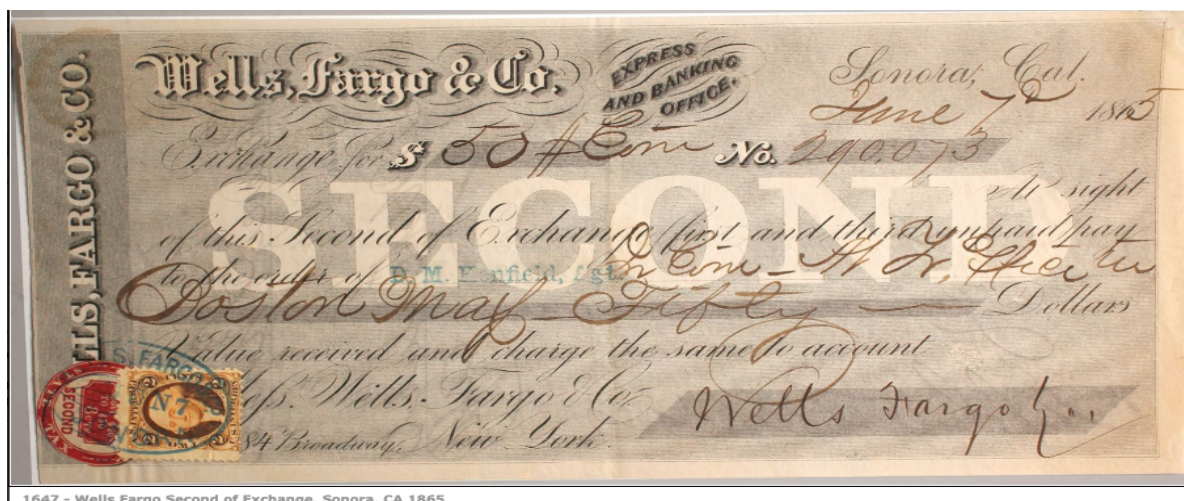 WELLS, FARGO & CO.
Wells, Fargo & Co.
EXPRESS
AND BANKING
OFFICE.
Sonora, Cal.
June 7 1865
Exchange for $ 50 # Coin No. 290.073
SECOND
At sight
of this Second of Exchange (first and third unpaid) pay
to the order of D. M. Kenfield, Agt. In Coin
Boston Mas Fifty Dollars
Value received and charge the same to account
Wells, Fargo & Co.
84 Broadway, New York.
Wells Fargo & Co.
S. FARGO
N 7
SECOND
1647 - Wells Fargo Second of Exchange, Sonora, CA 1865